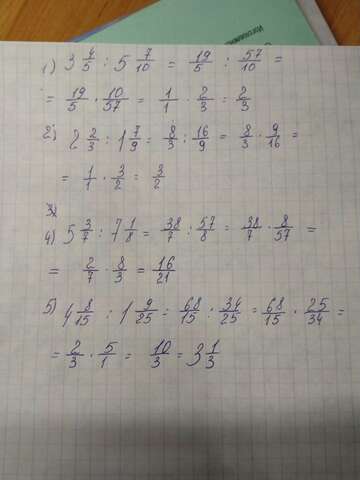 1) 3 4/5 : 5 7/10 = 19/5 : 57/10 =
= 19/5 · 10/57 = 1/1 · 2/3 = 2/3
2) 2 2/3 : 1 7/9 = 8/3 : 16/9 = 8/3 · 9/16 =
= 1/1 · 3/2 = 3/2
3)
4) 5 3/7 : 7 1/8 = 38/7 : 57/8 = 38/7 · 8/57 =
= 2/7 · 8/3 = 16/21
5) 4 8/15 : 1 9/25 = 68/15 : 34/25 = 68/15 · 25/34 =
= 2/3 · 5/1 = 10/3 = 3 1/3